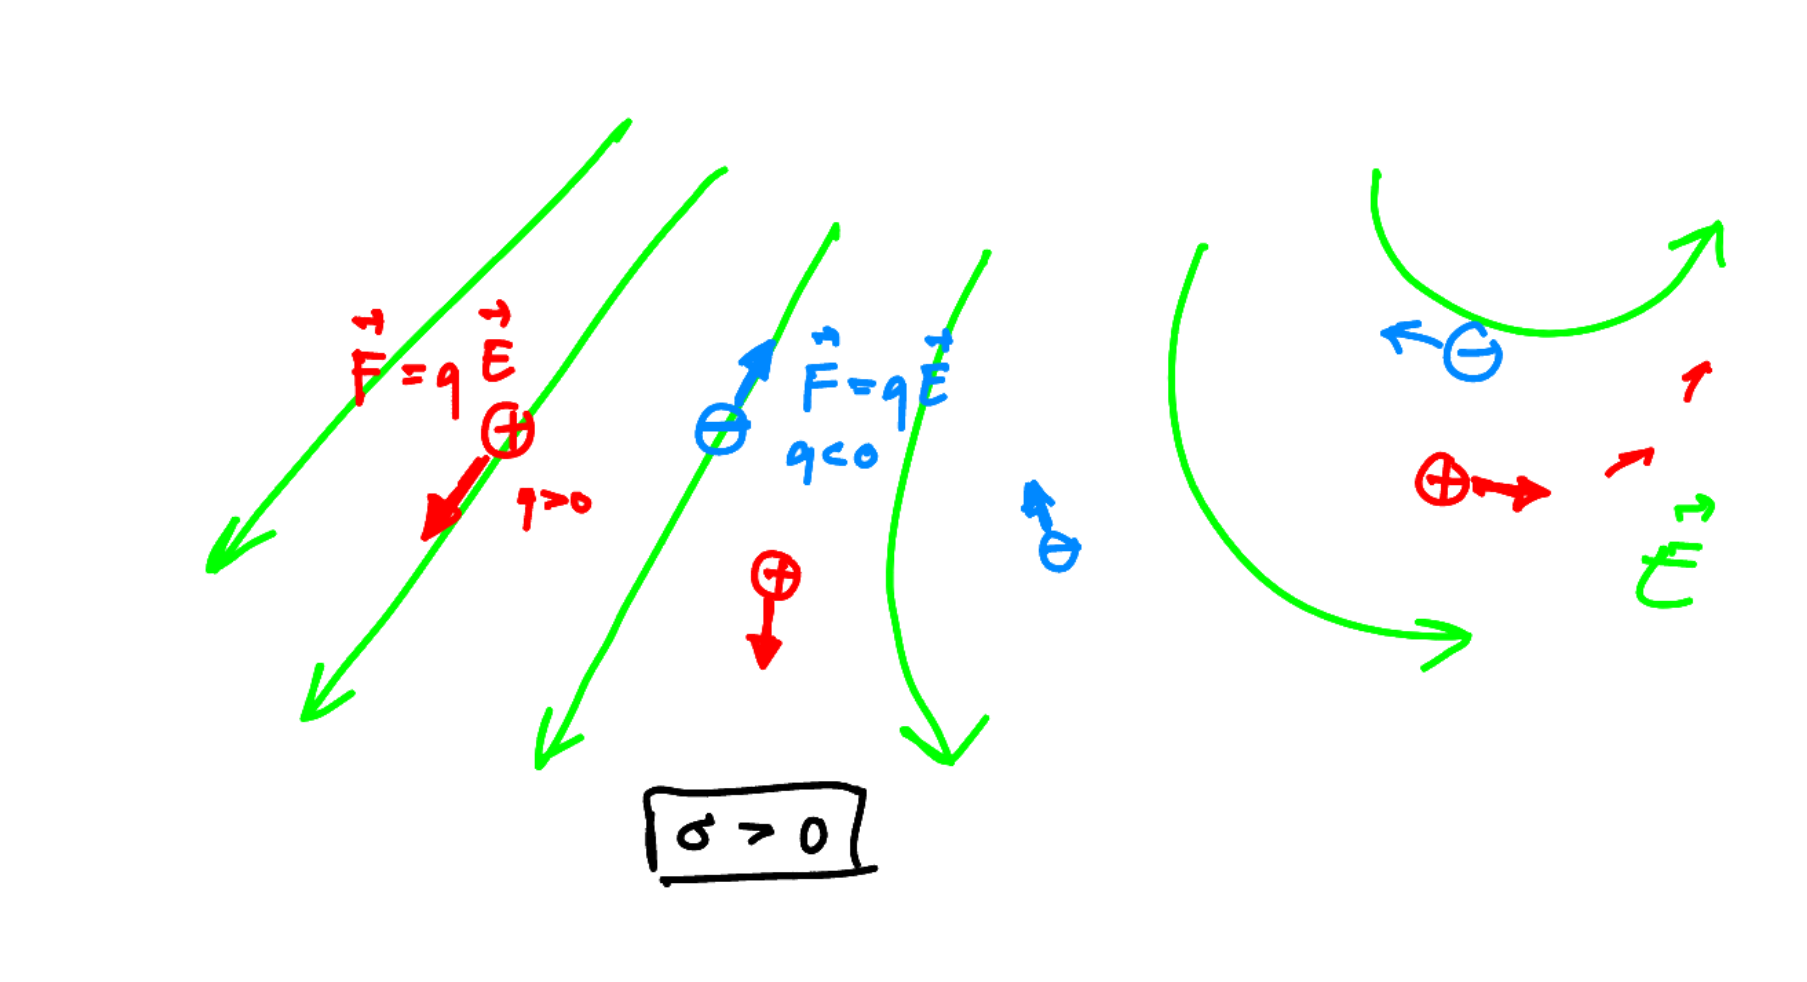 F⃗ = q E⃗
q > 0
F⃗ = q E⃗
q < 0
E⃗
σ > 0